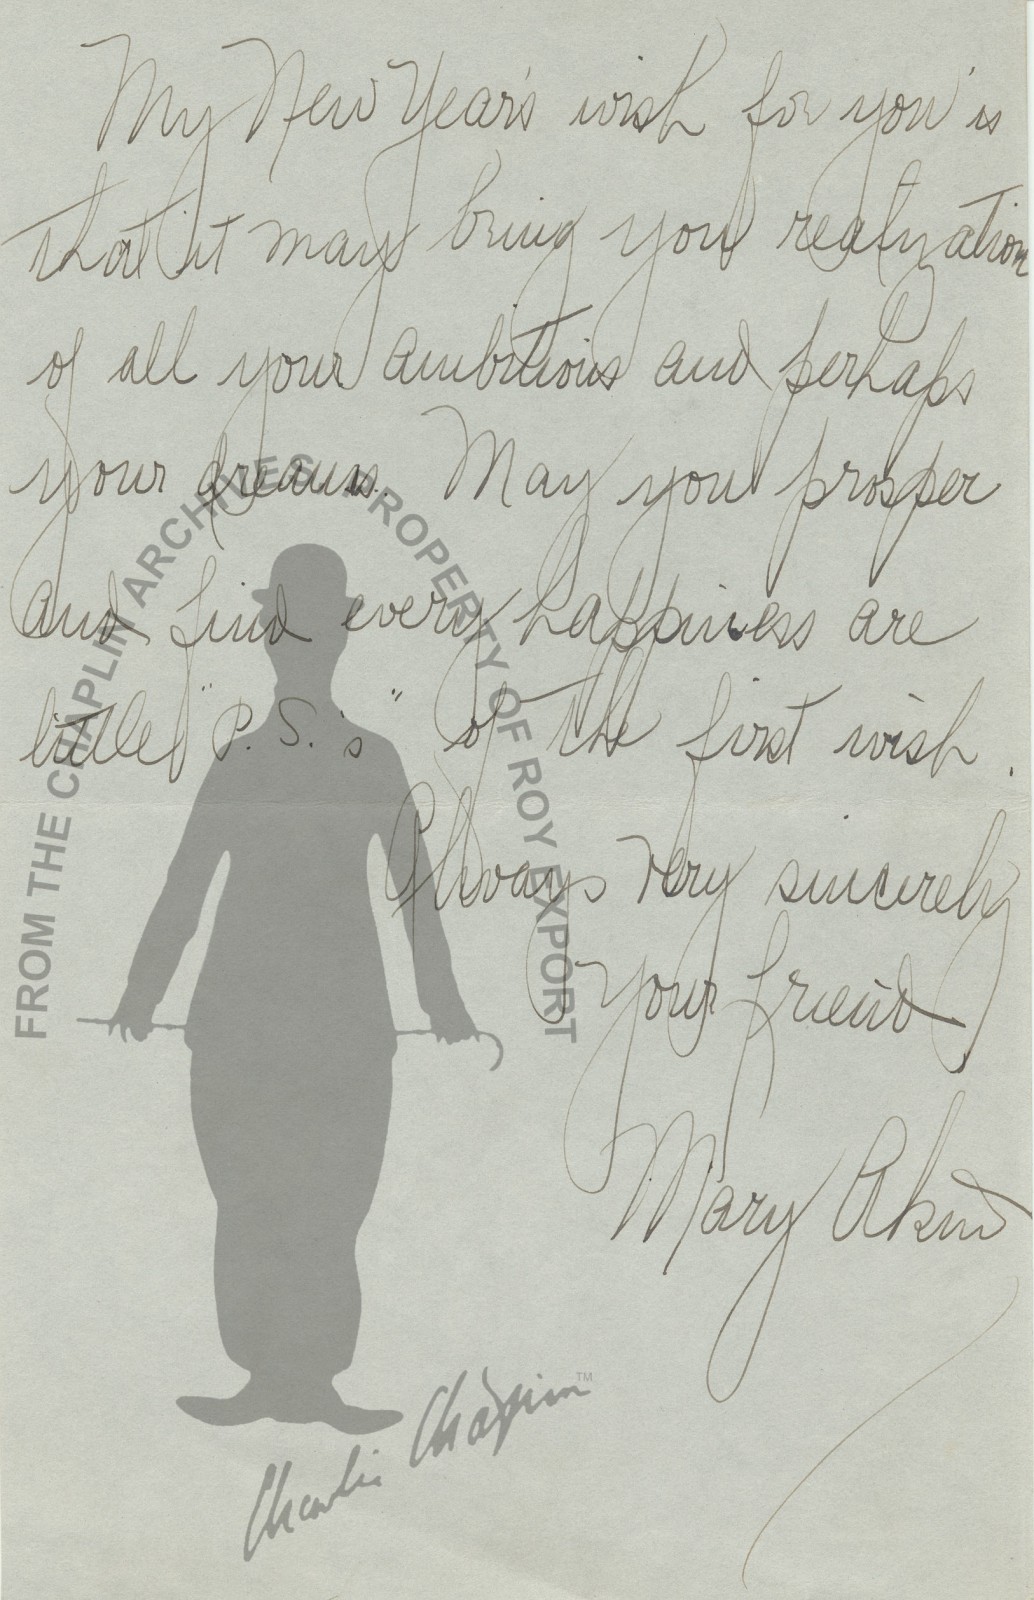 My New Year's wish for you is
that it may bring you realization
of all your ambitions and perhaps
your dreams. May you prosper
and find every happiness are
little "P. S.'s" of the first wish.
Always very sincerely
Your friend
Mary Akin
FROM THE CHAPLIN ARCHIVES PROPERTY OF ROY EXPORT
Charlie Chaplin™